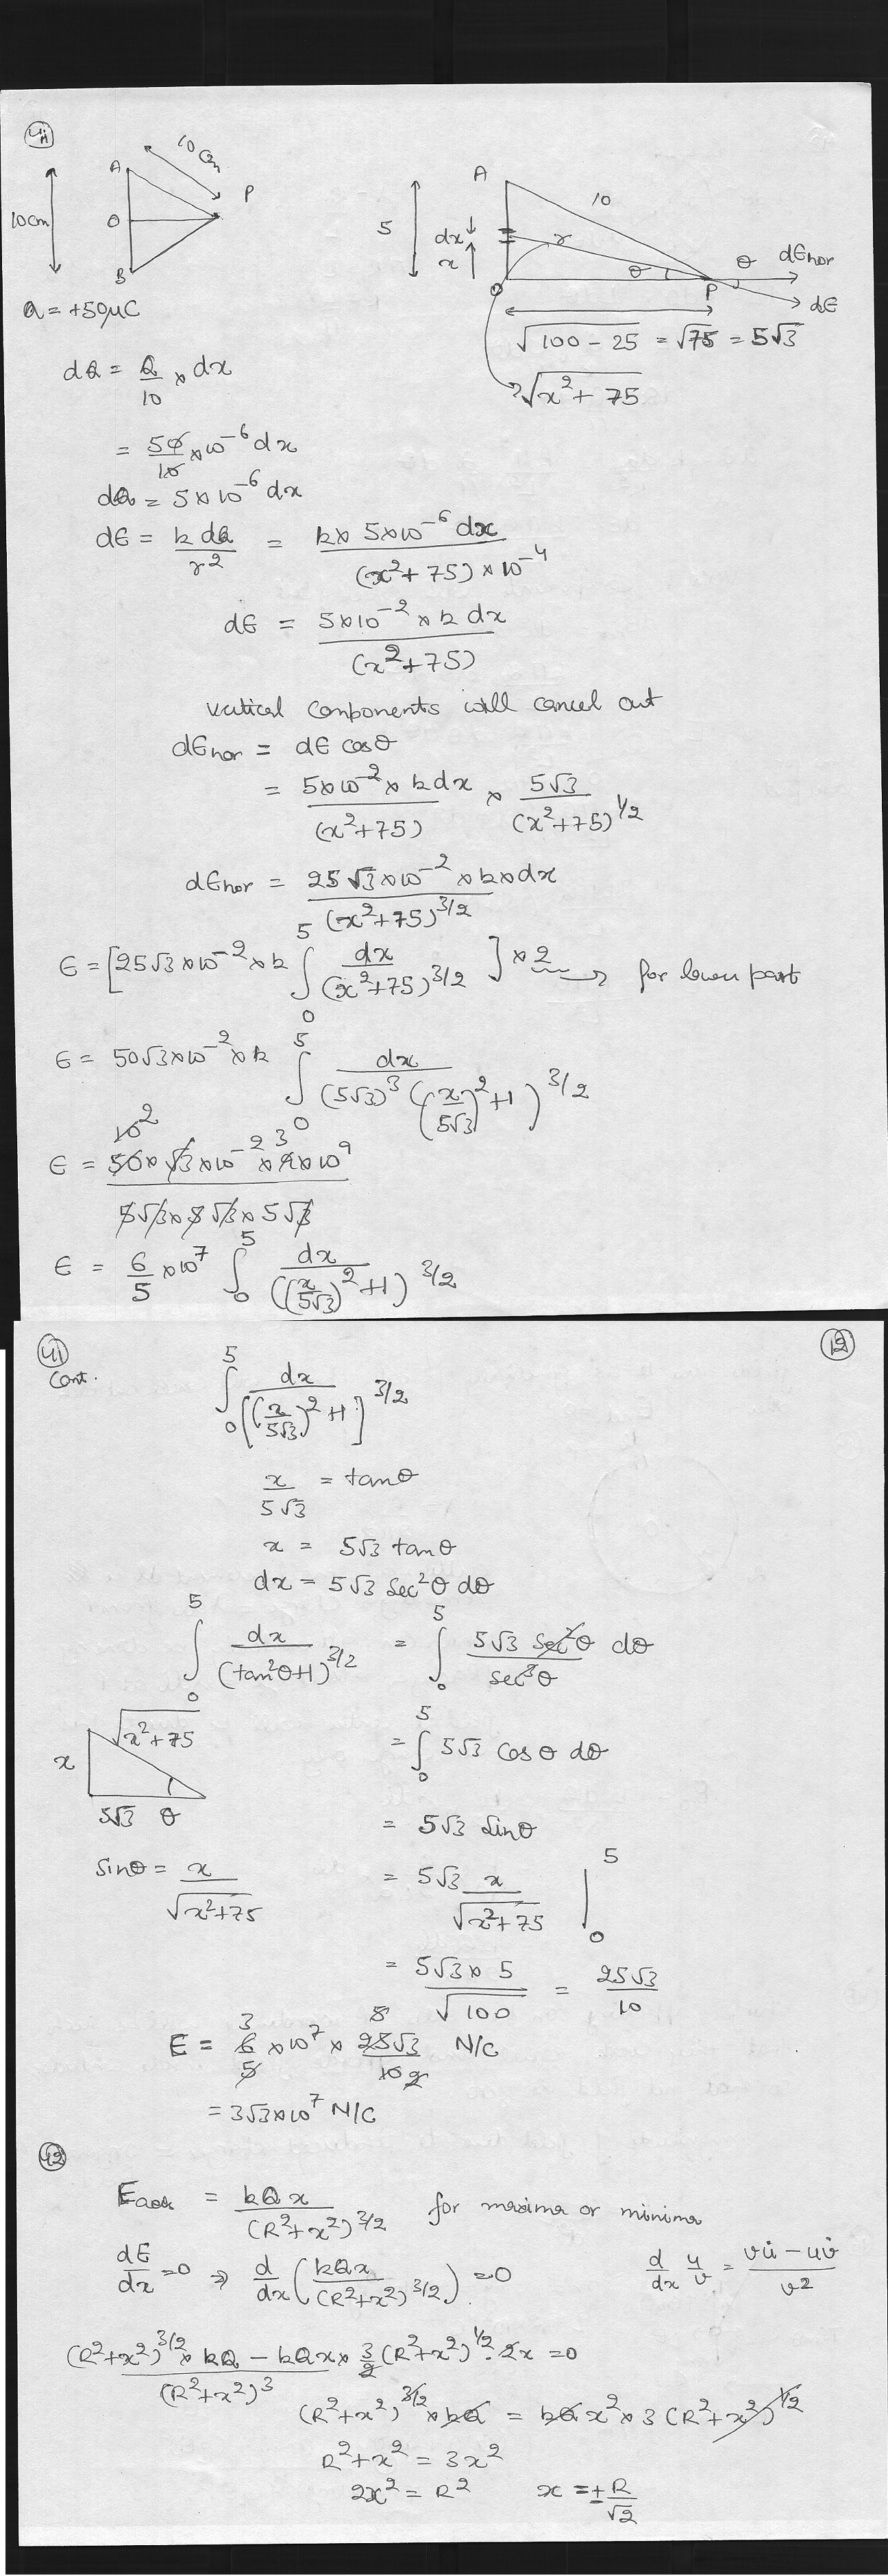 41
A
10 cm
P
10cm
O
B
Q = +50μC
A
10
5
dx
x
r
θ
θ
dE hor
O
P
dE
√(100 - 25) = √75 = 5√3
√(x² + 75)
dQ = Q/10 × dx
= 50/10 × 10⁻⁶ dx
dQ = 5×10⁻⁶ dx
dE = k dQ / r² = k× 5×10⁻⁶ dx / (x² + 75) × 10⁻⁴
dE = 5×10⁻² × k dx / (x² + 75)
vertical components will cancel out
dE hor = dE cosθ
= 5×10⁻² × k dx / (x²+75) × 5√3 / (x²+75)^1/2
dE hor = 25√3×10⁻² × k × dx / (x²+75)^3/2
E = [25√3×10⁻² × k ∫₀⁵ dx / (x²+75)^3/2] × 2 → for lower part
E = 50√3×10⁻² × k ∫₀⁵ dx / (5√3)³ ((x/5√3)² + 1)^3/2
E = 50 × √3 × 10⁻² × 9 × 10⁹ / 5√3 × 5√3 × 5√3
10 2 3
E = 6/5 × 10⁷ ∫₀⁵ dx / ((x/5√3)² + 1)^3/2
41
Cont.
12
∫₀⁵ dx / [(x/5√3)² + 1]^3/2
x/5√3 = tanθ
x = 5√3 tanθ
dx = 5√3 sec²θ dθ
∫₀⁵ dx / (tan²θ+1)^3/2 = ∫₀⁵ 5√3 sec²θ dθ / sec³θ
√(x²+75)
x
5√3 θ
= ∫₀⁵ 5√3 cosθ dθ
= 5√3 sinθ
sinθ = x / √(x²+75)
= 5√3 x / √(x²+75) |₀⁵
= 5√3 × 5 / √100 = 25√3 / 10
E = 6/5 × 10⁷ × 25√3 / 10 N/C
3 5 2
= 3√3×10⁷ N/C
42
E axis = kQx / (R²+x²)^3/2 for maxima or minima
dE/dx = 0 ⇒ d/dx (kQx / (R²+x²)^3/2) = 0
d/dx u/v = (vu̇ - uv̇) / v²
(R²+x²)^3/2 × kQ - kQx × 3/2 (R²+x²)^1/2 · 2x / (R²+x²)³ = 0
(R²+x²)^3/2 × kQ = kQ x² × 3 (R²+x²)^1/2
R²+x² = 3x²
2x² = R² x = ± R/√2